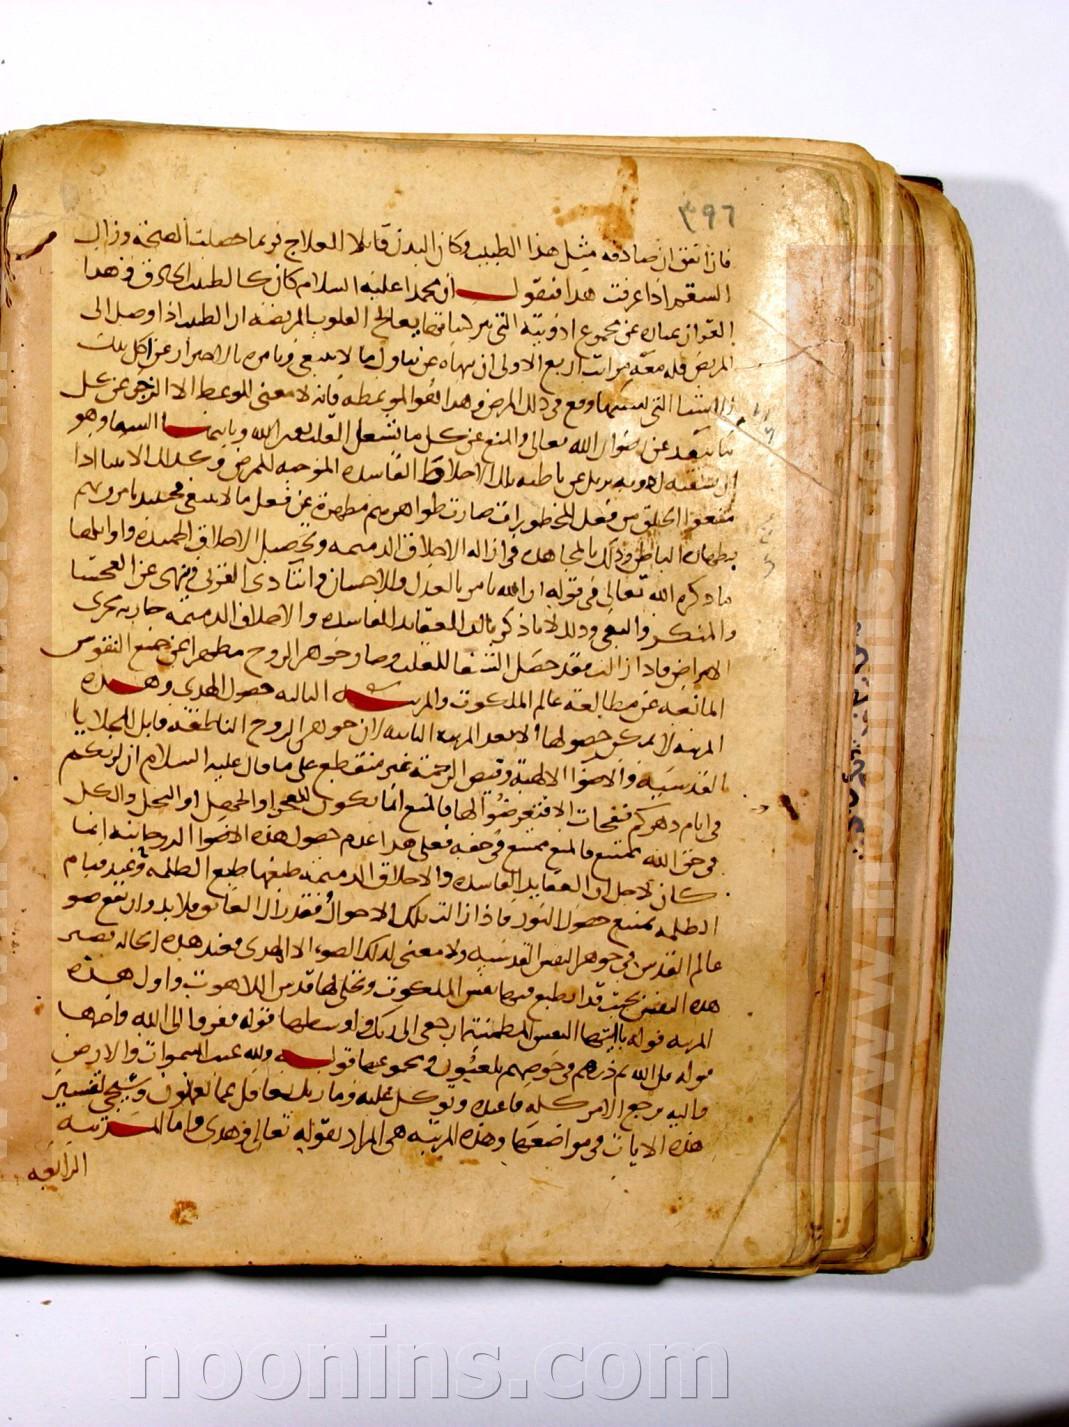 ٣٩٦
فاذا اتفق ان صادفه مثل هذا الطبيب وكان البدن قابلا للعلاج فربما حصلت الصحة وزال
السقم اذا عرفت هذا فنقول ان محمدا عليه السلام كان كالطبيب الحاذق وهذا
القران عبارة عن مجموع ادويته التي بتركيباتها يعالج القلوب المريضة ثم ان الطبيب اذا وصل الى
المريض فله معه مراتب اربع الاولى ان ينهاه عن تناول ما لا ينبغي ويامره بالاحتراز عن اكل تلك
الاشيا التي بسببها وقع في ذلك المرض وهذا هو الموعظة فانه لا معنى للوعظ الا الزجر عن كل
ما يبعد عن رضوان الله تعالى والمنع عن كل ما يشغل القلب بغير الله وثانيها الشفا وهو
ان يسقيه ادوية تزيل عن باطنه تلك الاخلاط الفاسدة الموجبة للمرض وكذلك الانبيا اذا
منعوا الخلق من فعل المحظورات صارت ظواهرهم مطهرة عن فعل ما لا ينبغي فحينئذ يامرونهم
بطهارة الباطن وذلك بالمجاهدة في ازالة الاخلاق الذميمة وتحصيل الاخلاق الحميدة واوائلها
ما ذكره الله تعالى في قوله ان الله يامر بالعدل والاحسان وايتا ذي القربى وينهى عن الفحشا
والمنكر والبغي وذلك لانا ذكرنا ان العقايد الفاسدة والاخلاق الذميمة جارية مجرى
الامراض فاذا زالت فقد حصل الشفا للقلب وصار جوهر الروح مطهرا عن جميع النقوش
المانعة عن مطالعة عالم الملكوت والمرتبة الثالثة حصول الهدى وهذه
المرتبة لا يمكن حصولها الا بعد المرتبة الثانية لان جوهر الروح الناطقة قابل للجلايا
القدسية والاضوا الالهية وفيض الرحمة غير منقطع على ما قال عليه السلام ان لربكم
في ايام دهركم نفحات الا فتعرضوا لها فالمنع انما يكون للعجز او للجهل او البخل والكل
في حق الله ممتنع فالمنع ممتنع في حقه فعلى هذا عدم حصول هذه الاضوا الروحانية انما
كان لاجل ان العقايد الفاسدة والاخلاق الذميمة طبعها طبع الظلمة وعند قيام
الظلمة يمتنع حصول النور فاذا زالت تلك الاحوال فقد زال العائق فلا بد وان يقع ضو
عالم القدس في جوهر النفس القدسية ولا معنى لذلك الضوء الا الهدى فعند هذه الحالة تصير
هذه النفس بحيث قد انطبع فيها نقش الملكوت وتجلى لها قدس اللاهوت واول هذه
المرتبة قوله يا ايتها النفس المطمئنة ارجعي الى ربك واوسطها قوله ففروا الى الله واخرها
قوله قل الله ثم ذرهم في خوضهم يلعبون ومجموعها قوله ولله غيب السموات والارض
واليه يرجع الامر كله فاعبده وتوكل عليه وما ربك بغافل عما تعملون وسيجي تفسير
هذه الايات في مواضعها وهذه المرتبة هي المراد بقوله تعالى وهدى واما المرتبة
الرابعة